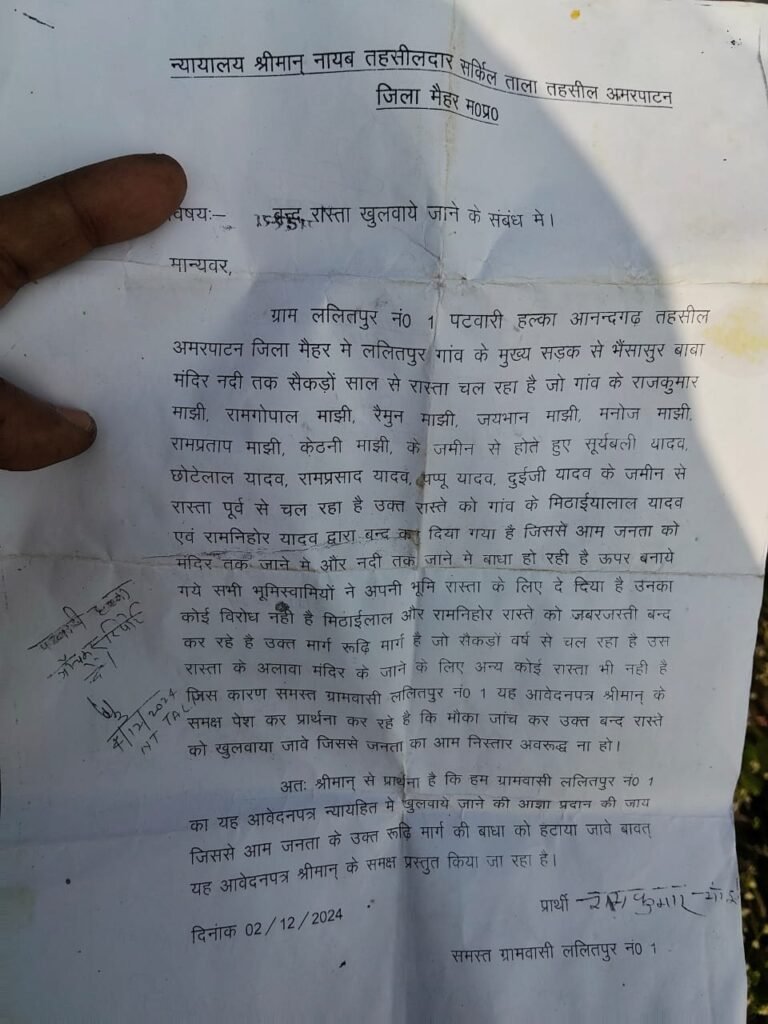 न्यायालय श्रीमान् नायब तहसीलदार सर्किल ताला तहसील अमरपाटन
जिला मैहर म0प्र0
विषय:- बन्द रास्ता खुलवाये जाने के संबंध मे।
मान्यवर,
ग्राम ललितपुर नं0 1 पटवारी हल्का आनन्दगढ़ तहसील
अमरपाटन जिला मैहर मे ललितपुर गांव के मुख्य सड़क से भैंसासुर बाबा
मंदिर नदी तक सैकड़ों साल से रास्ता चल रहा है जो गांव के राजकुमार
माझी, रामगोपाल माझी, रैमुन माझी, जयभान माझी, मनोज माझी,
रामप्रताप माझी, केठनी माझी, के जमीन से होते हुए सूर्यबली यादव,
छोटेलाल यादव, रामप्रसाद यादव, पप्पू यादव, दुईजी यादव के जमीन से
रास्ता पूर्व से चल रहा है उक्त रास्ते को गांव के मिठाईयालाल यादव
एवं रामनिहोर यादव द्वारा बन्द कर दिया गया है जिससे आम जनता को
मंदिर तक जाने मे और नदी तक जाने मे बाधा हो रही है ऊपर बनाये
गये सभी भूमिस्वामियों ने अपनी भूमि रास्ता के लिए दे दिया है उनका
कोई विरोध नही है मिठाईलाल और रामनिहोर रास्ते को जबरजस्ती बन्द
कर रहे है उक्त मार्ग रूढ़ि मार्ग है जो सैकड़ों वर्ष से चल रहा है उस
रास्ता के अलावा मंदिर के जाने के लिए अन्य कोई रास्ता भी नही है
जिस कारण समस्त ग्रामवासी ललितपुर नं0 1 यह आवेदनपत्र श्रीमान् के
समक्ष पेश कर प्रार्थना कर रहे है कि मौका जांच कर उक्त बन्द रास्ते
को खुलवाया जावे जिससे जनता का आम निस्तार अवरूद्ध ना हो।
पटवारी हल्का
4/12/2024
NT TALA
अतः श्रीमान् से प्रार्थना है कि हम ग्रामवासी ललितपुर नं0 1
का यह आवेदनपत्र न्यायहित मे खुलवाये जाने की आज्ञा प्रदान की जाय
जिससे आम जनता के उक्त रूढ़ि मार्ग की बाधा को हटाया जावे बावत्
यह आवेदनपत्र श्रीमान् के समक्ष प्रस्तुत किया जा रहा है।
प्रार्थी राम कुमार
दिनांक 02/12/2024
समस्त ग्रामवासी ललितपुर नं0 1